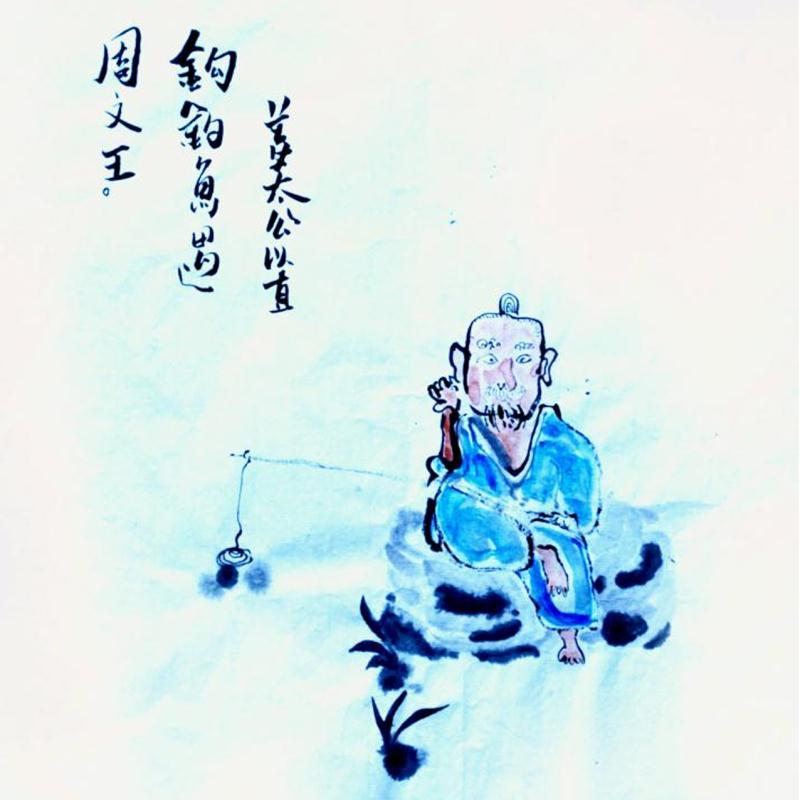 姜太公以直
鈎釣魚遇
周文王。